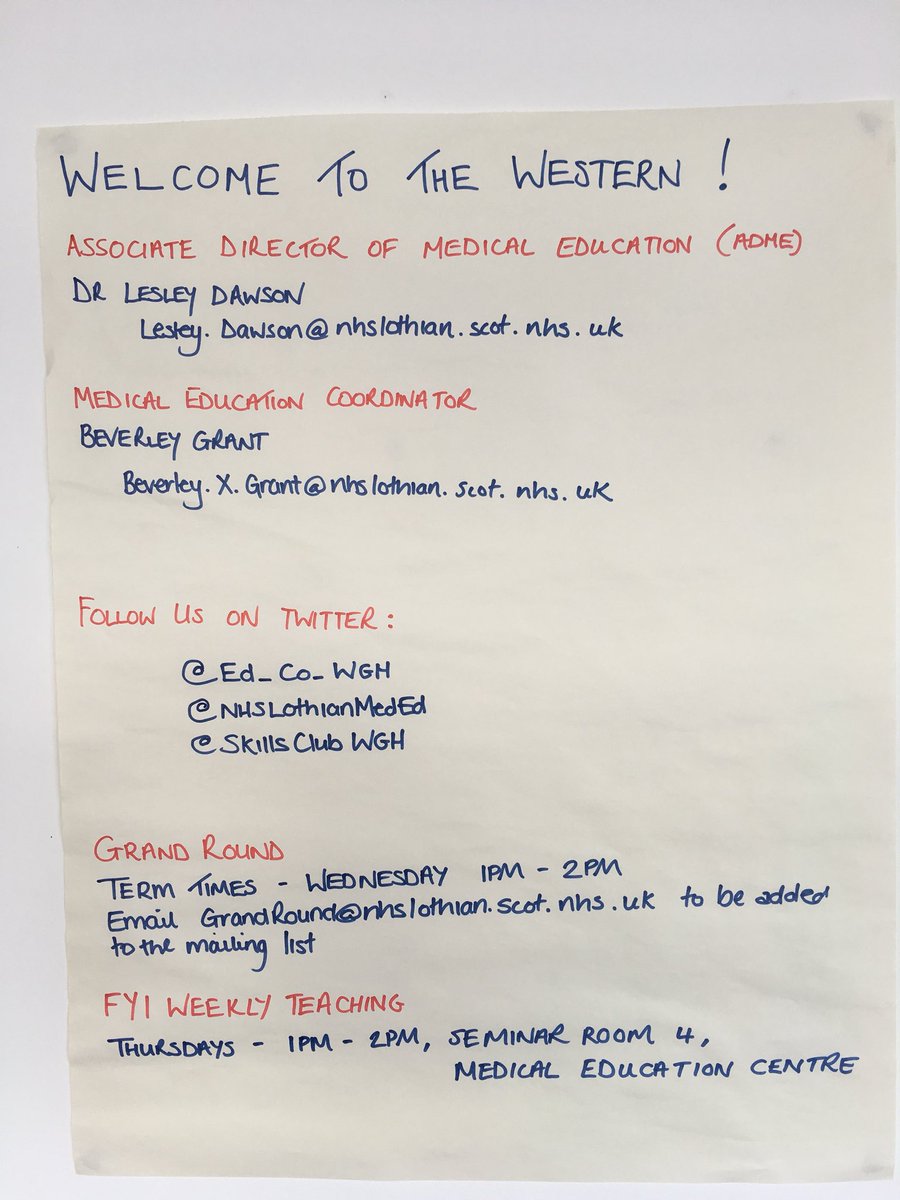 WELCOME TO THE WESTERN !
ASSOCIATE DIRECTOR OF MEDICAL EDUCATION (ADME)
DR LESLEY DAWSON
Lesley.Dawson@nhslothian.scot.nhs.uk
MEDICAL EDUCATION COORDINATOR
BEVERLEY GRANT
Beverley.X.Grant@nhslothian.scot.nhs.uk
FOLLOW US ON TWITTER :
@Ed_Co_WGH
@NHSLothianMedEd
@SkillsClubWGH
GRAND ROUND
TERM TIMES - WEDNESDAY 1PM - 2PM
Email GrandRound@nhslothian.scot.nhs.uk to be added
to the mailing list
FY1 WEEKLY TEACHING
THURSDAYS - 1PM - 2PM, SEMINAR ROOM 4,
MEDICAL EDUCATION CENTRE